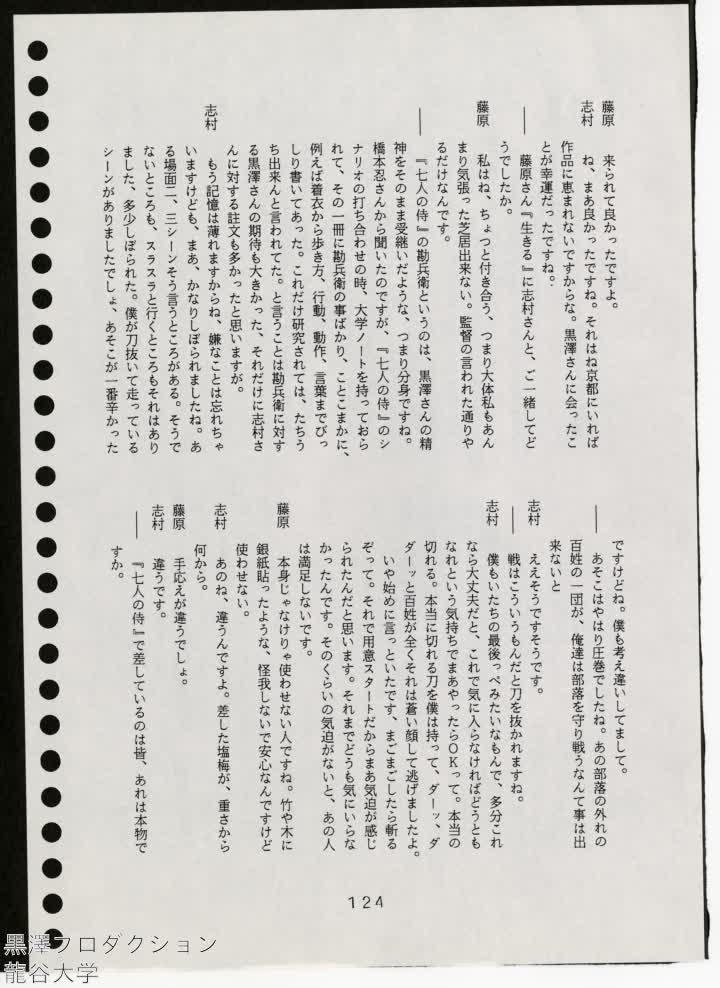 藤原　来られて良かったですよ。
志村　ね、まあ良かったですね。それはね京都にいれば
作品に恵まれないですからな。黒澤さんに会ったこ
とが幸運だったですね。
――　藤原さん『生きる』に志村さんと、ご一緒してど
うでしたか。
藤原　私はね、ちょっと付き合う、つまり大体私もあん
まり気張った芝居出来ない。監督の言われた通りや
るだけなんです。
――　『七人の侍』の勘兵衛というのは、黒澤さんの精
神をそのまま受継いだような、つまり分身ですね。
橋本忍さんから聞いたのですが、『七人の侍』のシ
ナリオの打ち合わせの時、大学ノートを持っておら
れて、その一冊に勘兵衛の事ばかり、ことこまかに、
例えば着衣から歩き方、行動、動作、言葉までびっ
しり書いてあった。これだけ研究されては、たちう
ち出来んと言われてた。と言うことは勘兵衛に対す
る黒澤さんの期待も大きかった、それだけに志村さ
んに対する註文も多かったと思いますが。
志村　もう記憶は薄れますからね、嫌なことは忘れちゃ
いますけども、まあ、かなりしぼられましたね。あ
る場面二、三シーンそう言うところがある。そうで
ないところも、スラスラと行くところもそれはあり
ました、多少しぼられた。僕が刀抜いて走っている
シーンがありましたでしょ、あそこが一番辛かった
ですけどね。僕も考え違いしてまして。
――　あそこはやはり圧巻でしたね。あの部落の外れの
百姓の一団が、俺達は部落を守り戦うなんて事は出
来ないと
志村　ええそうですそうです。
――　戦はこういうもんだと刀を抜かれますね。
志村　僕もいたちの最後っぺみたいなもんで、多分これ
なら大丈夫だと、これで気に入らなければどうとも
なれという気持ちでまあやったらＯＫって。本当の
切れる。本当に切れる刀を僕は持って、ダーッ、ダ
ダーッと百姓が全くそれは蒼い顔して逃げましたよ。
いや始めに言っといたです、まごまごしたら斬る
ぞって。それで用意スタートだからまあ気迫が感じ
られたんだと思います。それまでどうも気にいらな
かったんです。そのくらいの気迫がないと、あの人
は満足しないです。
藤原　本身じゃなけりゃ使わせない人ですね。竹や木に
銀紙貼ったような、怪我しないで安心なんですけど
使わせない。
志村　あのね、違うんですよ。差した塩梅が、重さから
何から。
藤原　手応えが違うでしょ。
志村　違うです。
――　『七人の侍』で差しているのは皆、あれは本物で
すか。
124
黒澤プロダクション
龍谷大学